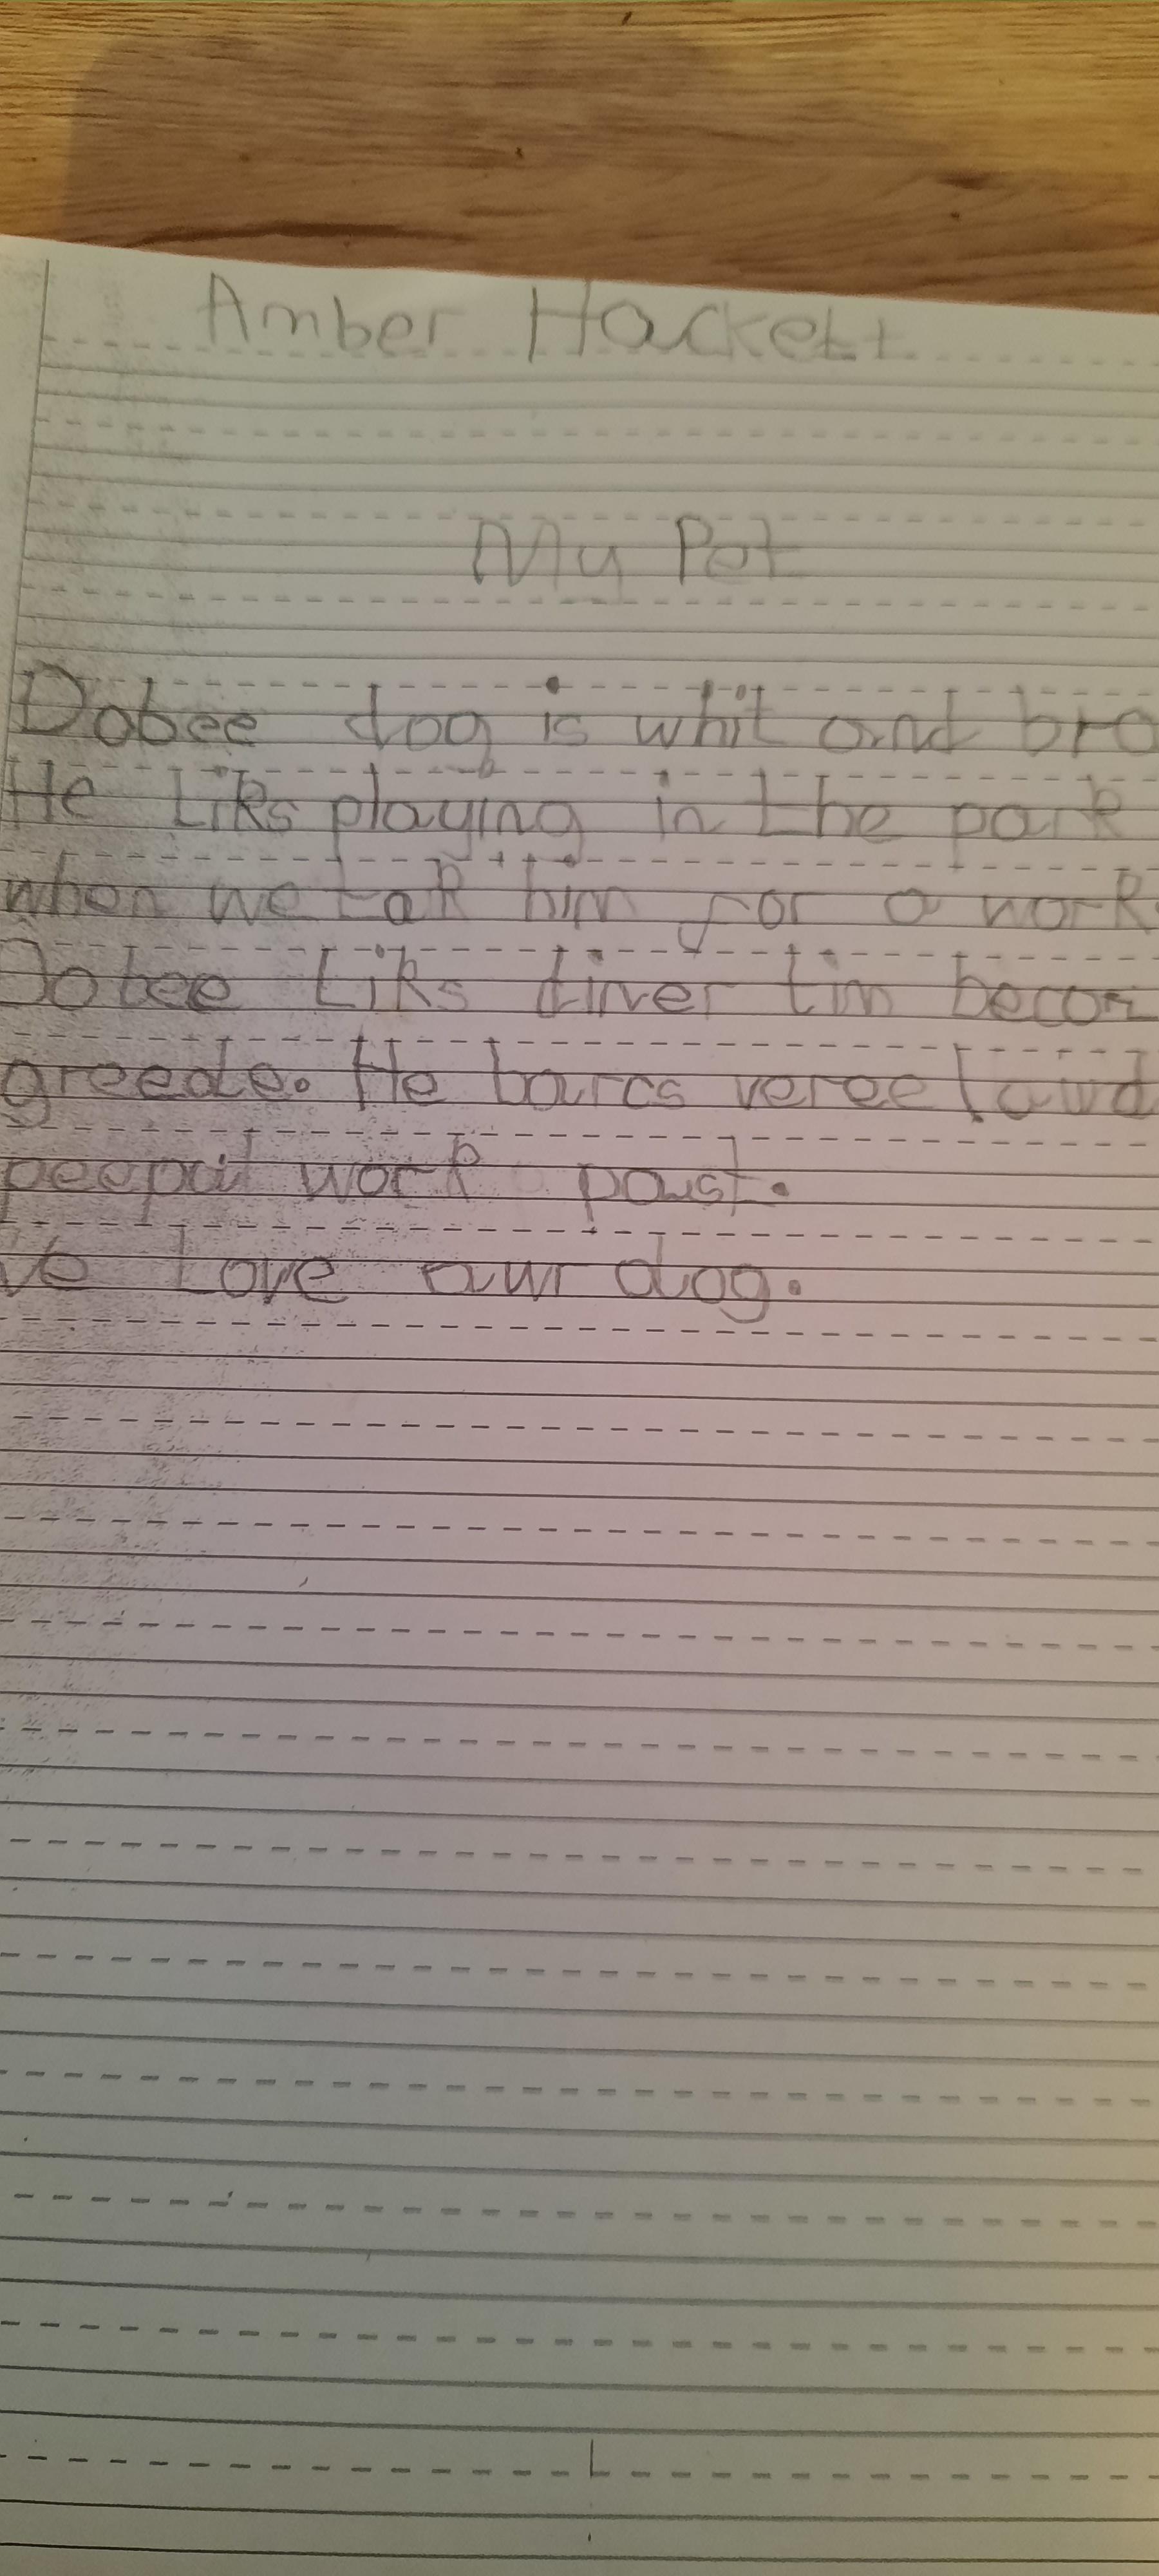 Amber Hackett
My Pet
Dobee dog is whit and bro
He Liks playing in the park
when we tak him for a work
Dobee Liks diner tim becos
greede. He barcs veree lawd
peepal work past.
We Love awr dog.